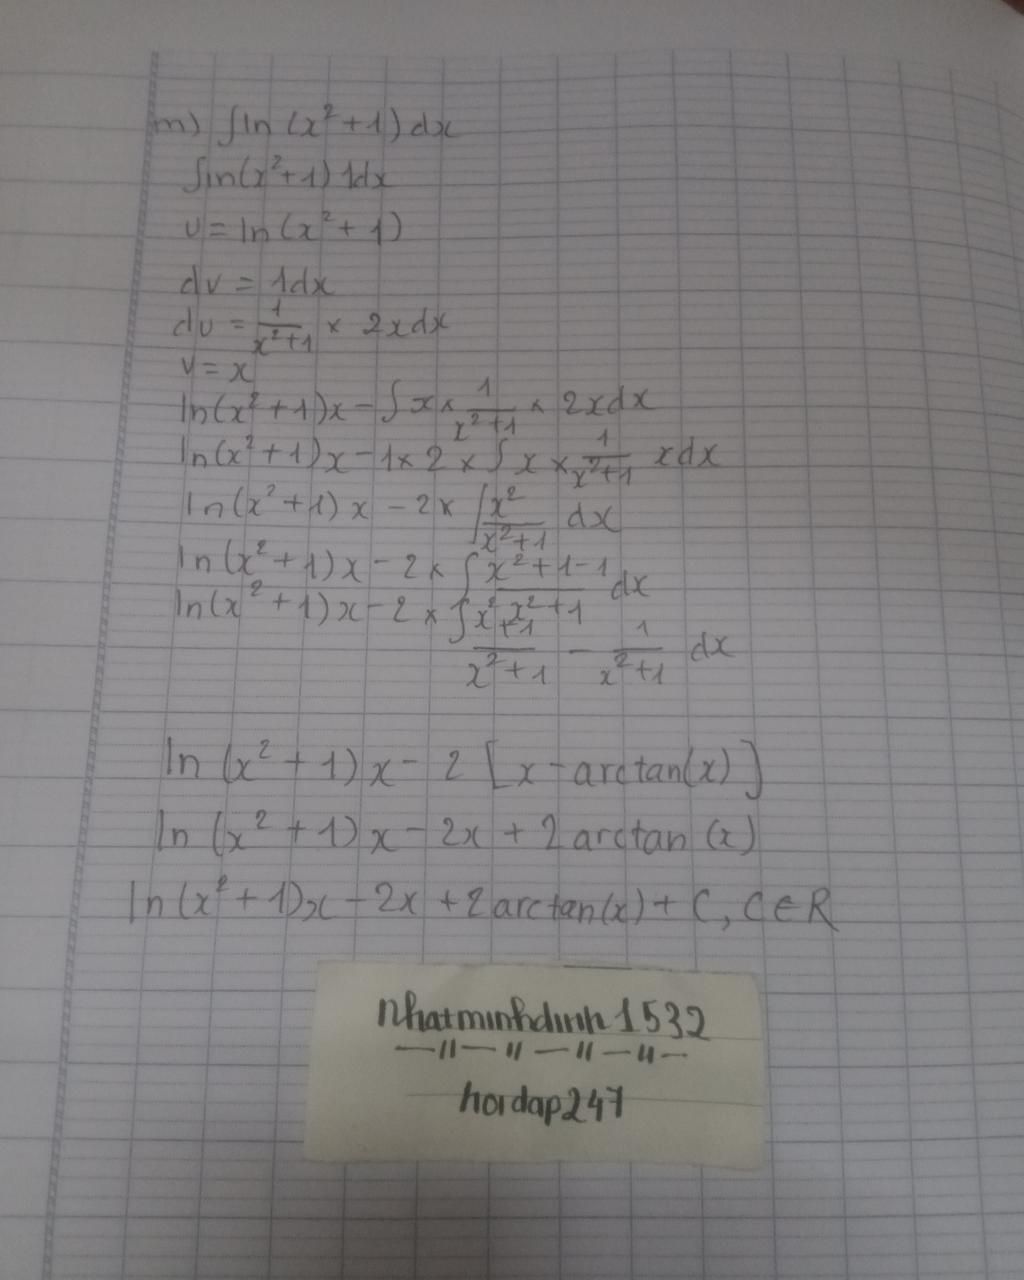 m) ∫ln (x²+1) dx
∫ln(x²+1) 1dx
u = ln (x²+1)
dv = 1dx
du = 1/(x²+1) × 2xdx
v = x
ln(x²+1)x - ∫x × 1/(x²+1) × 2xdx
ln(x²+1)x - 1×2×∫x × 1/(x²+1) xdx
ln(x²+1)x - 2×∫x²/(x²+1) dx
ln(x²+1)x - 2×∫(x²+1-1)/(x²+1) dx
ln(x²+1)x - 2×∫(x²+1)/(x²+1) - 1/(x²+1) dx
ln (x²+1)x - 2 [x - arctan(x)]
ln (x²+1)x - 2x + 2 arctan (x)
ln(x²+1)x - 2x + 2 arctan(x) + C, C∈R
nhatminhdinh1532
—11— 11 —11—11—
hoidap247